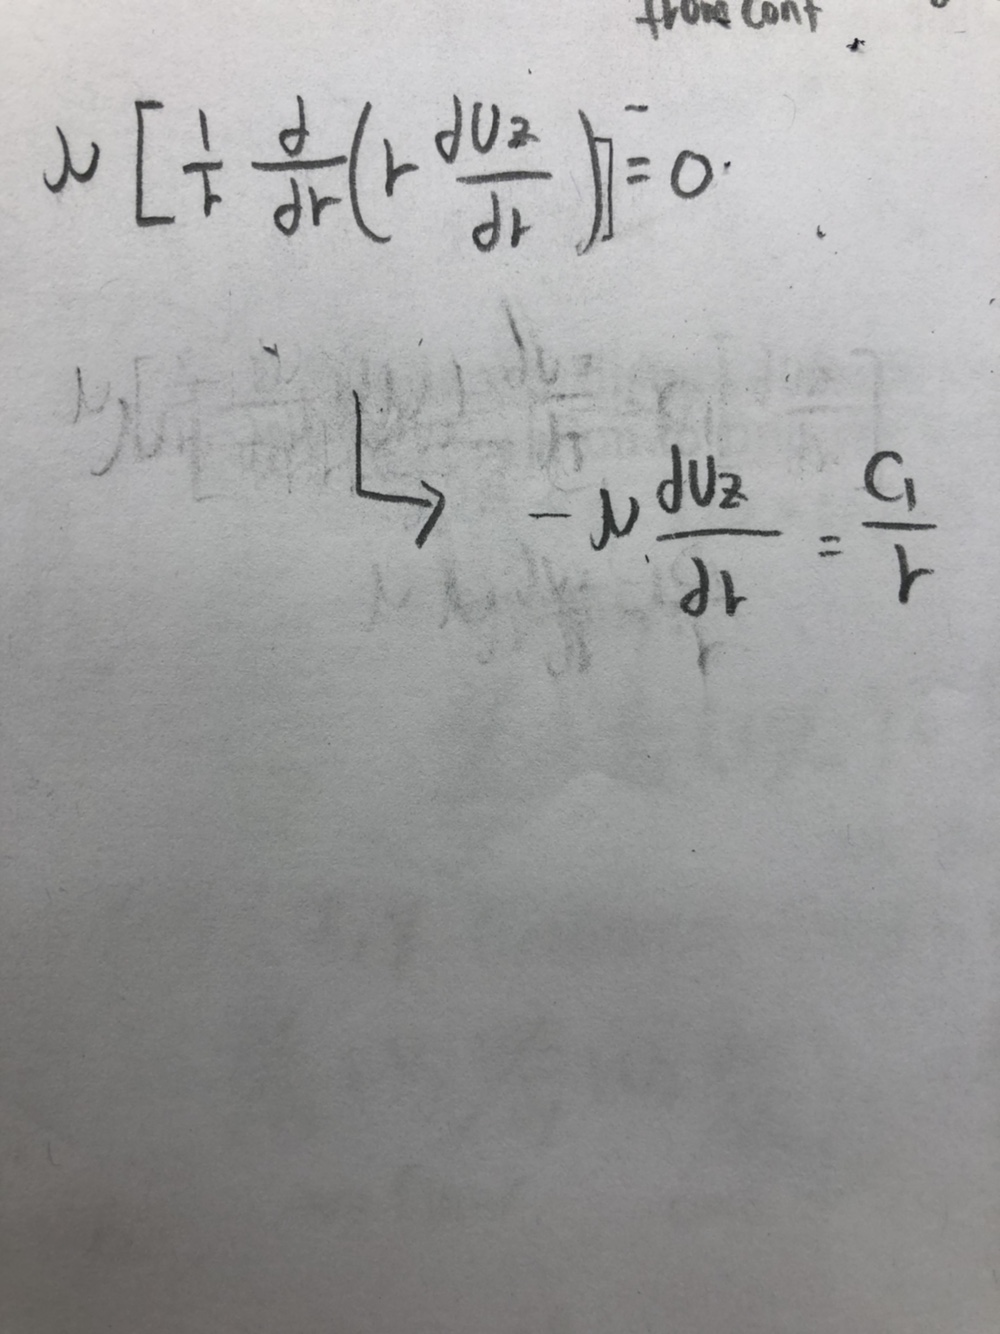 from cont
μ [ 1/r d/dr ( r dUz/dr ) ] = 0
- μ dUz/dr = C₁/r